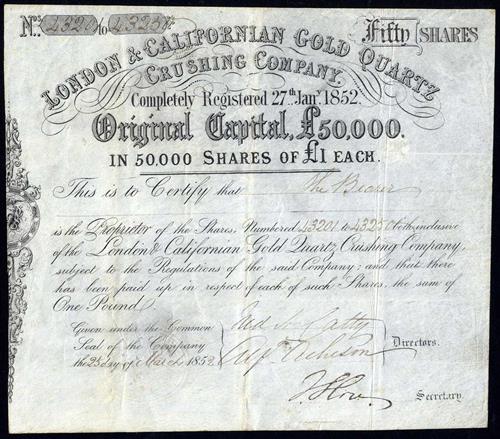 Nos. 4320 to 43250 Fifty SHARES
LONDON & CALIFORNIAN GOLD QUARTZ
CRUSHING COMPANY.
Completely Registered 27th. Jany. 1852.
Original Capital, £50,000.
IN 50,000 SHARES OF £1 EACH.
This is to Certify that The Bearer
is the Proprietor of the Shares, Numbered 43201 to 43250 both inclusive
of the London & Californian Gold Quartz Crushing Company,
subject to the Regulations of the said Company; and that there
has been paid up in respect of each of such Shares, the sum of
One Pound.
Given under the Common
Seal of the Company
the 25 day of March 1852
Directors.
Secretary.